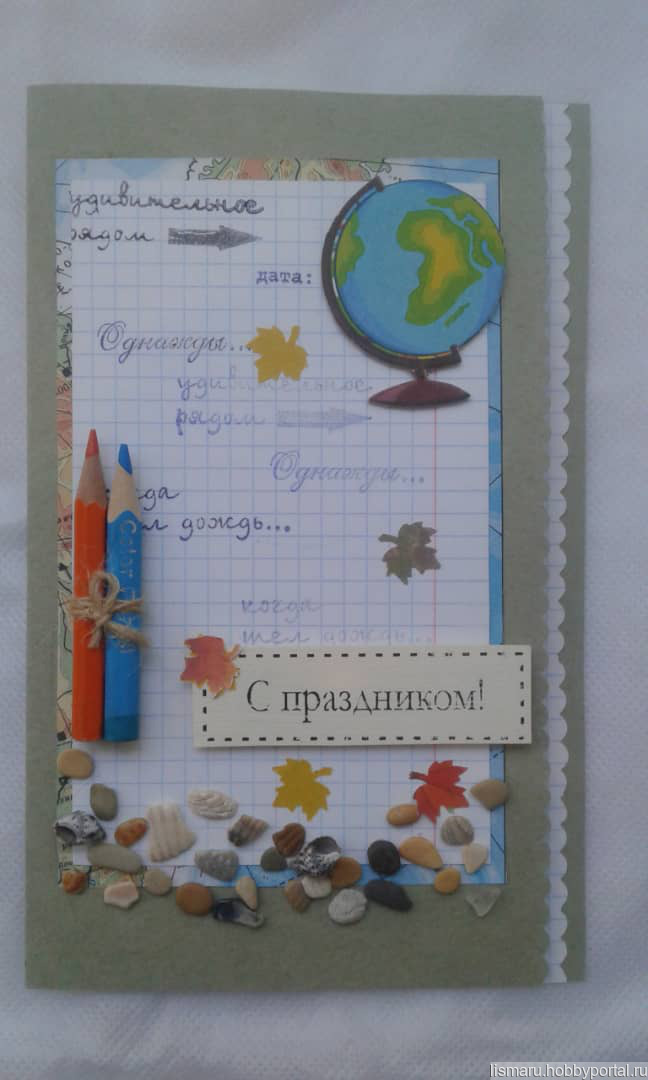 удивительное
рядом
дата:
Однажды...
удивительное
рядом
Однажды...
дождь...
когда
шел дождь...
С праздником!
lismaru.hobbyportal.ru